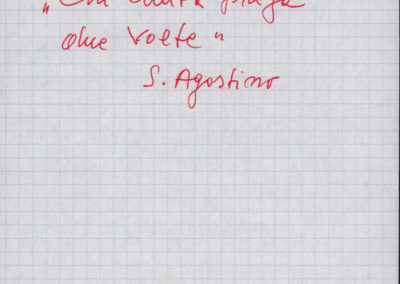 „Chi canta prega
due Volte"
S. Agostino